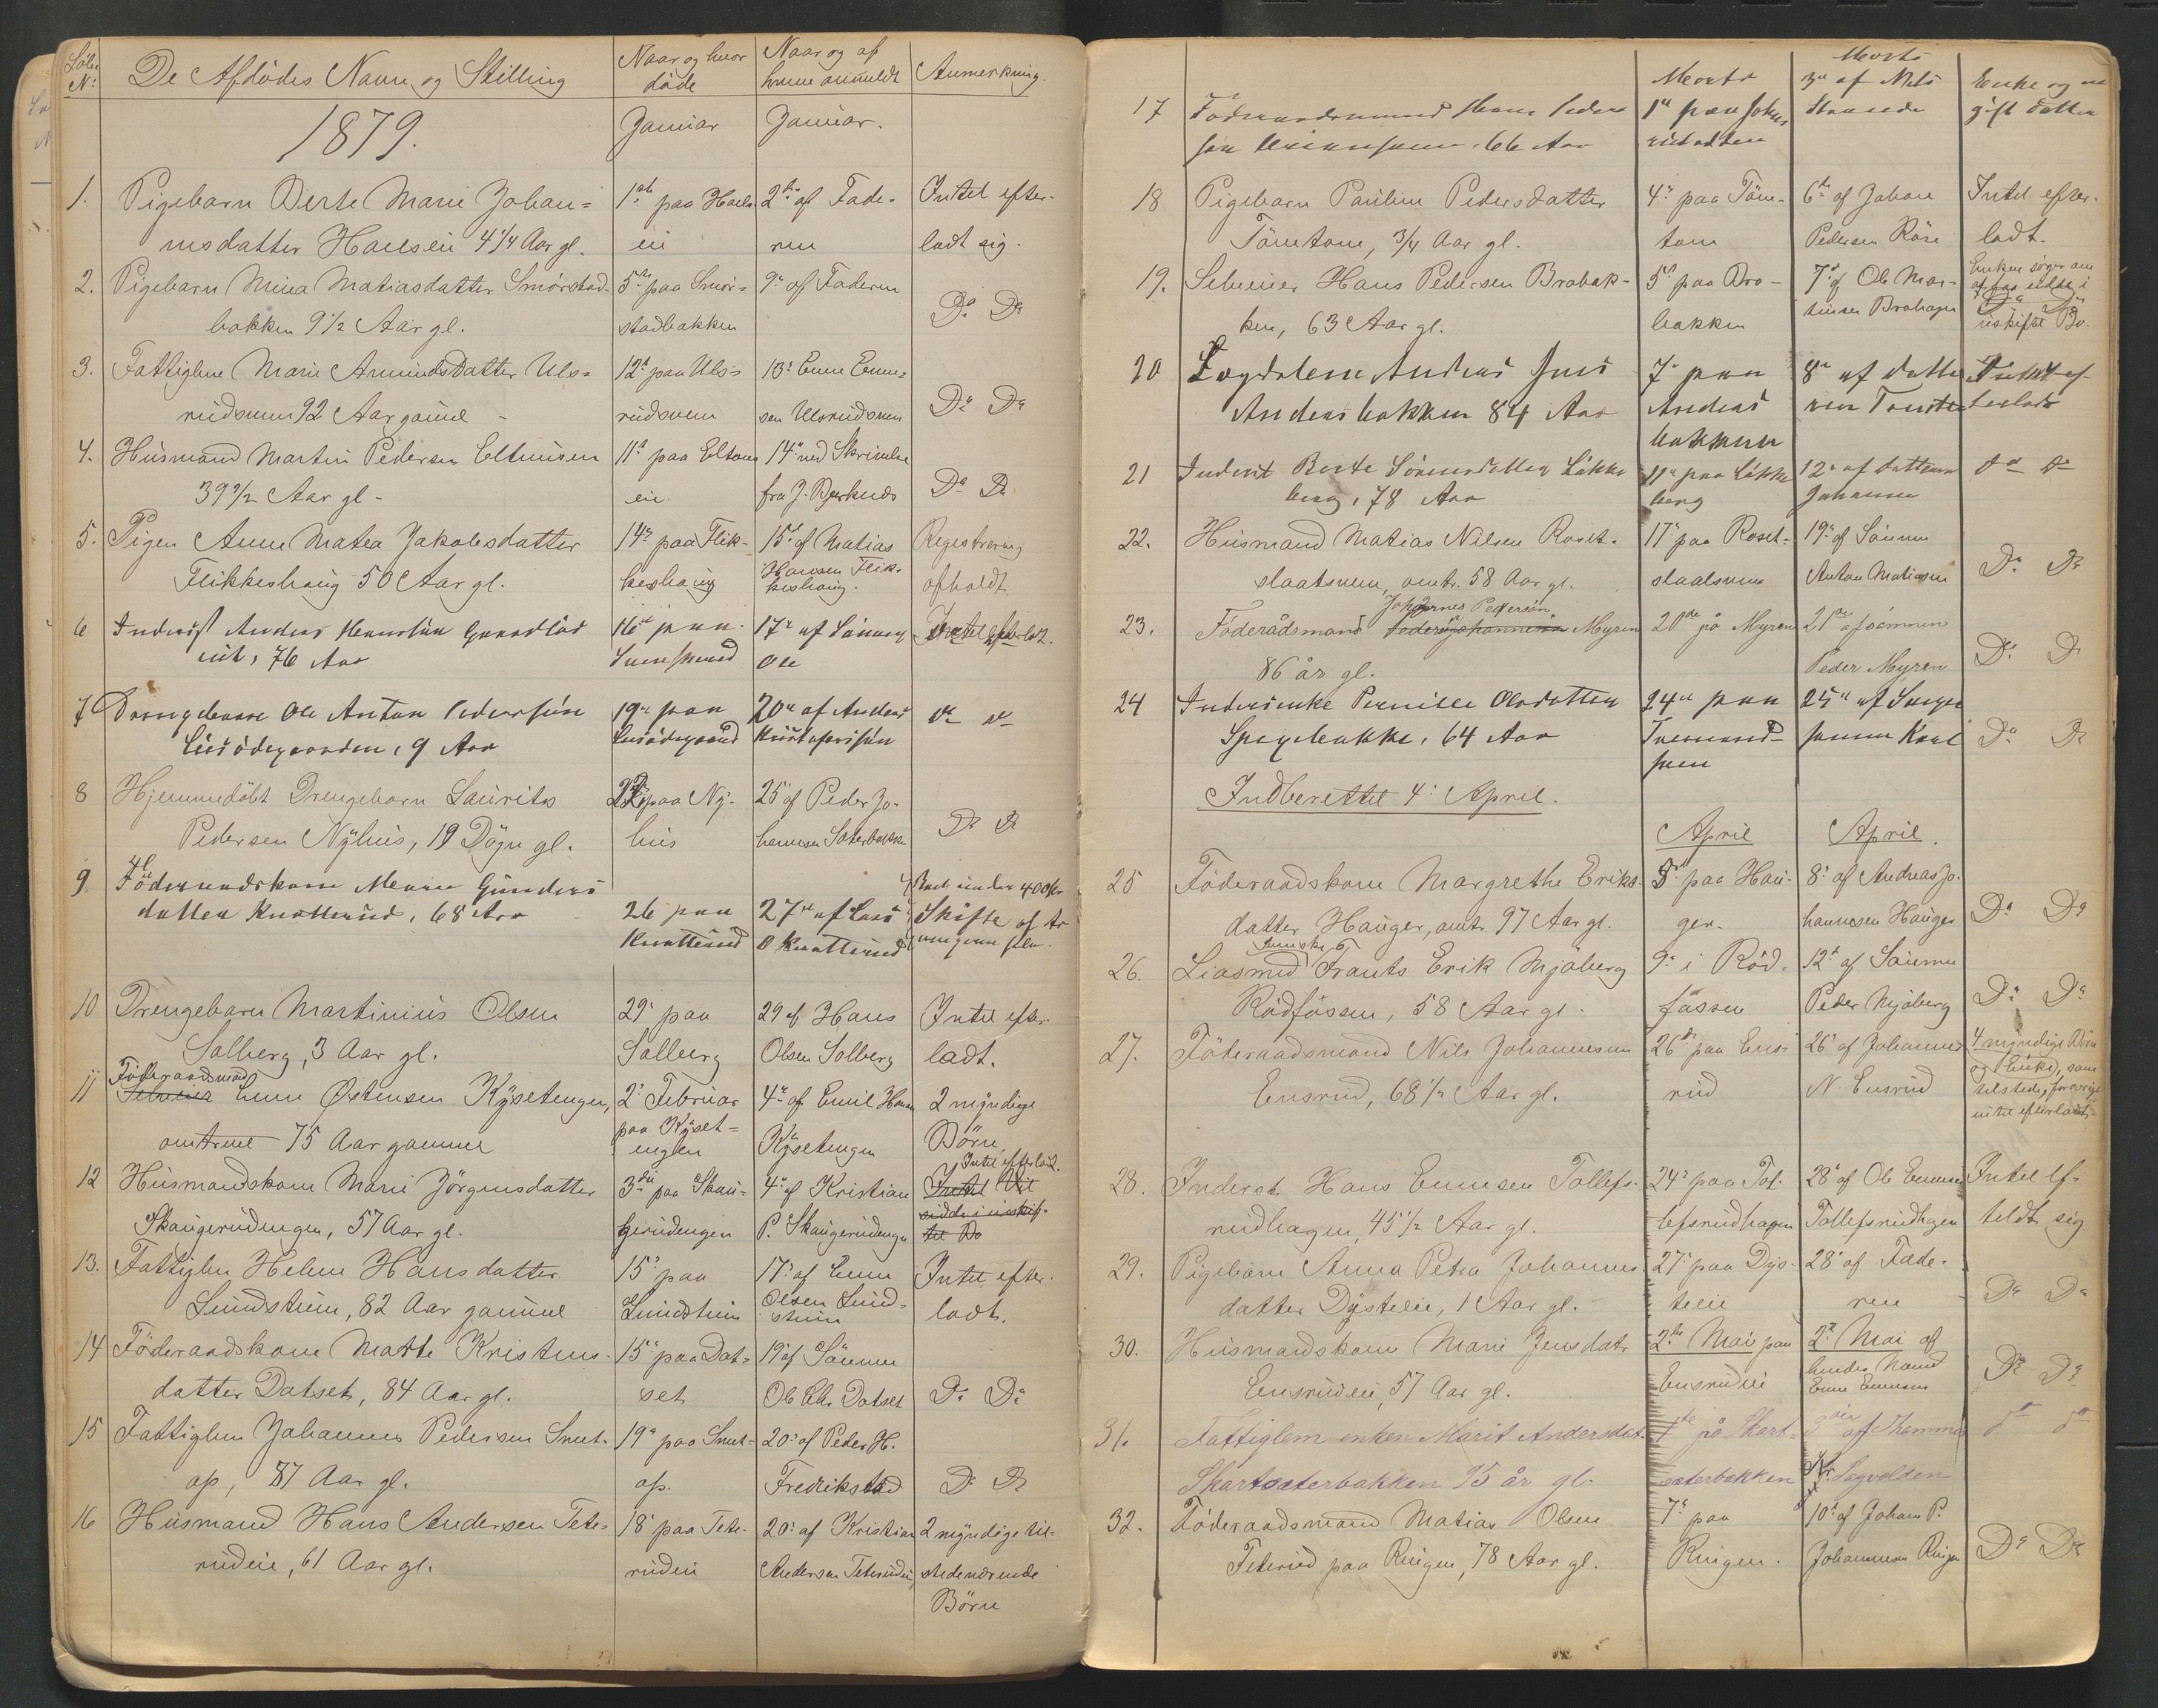 Löbe N:
De Afdödes Navn og Stilling
Naar og hvor döde
Naar og af hvem anmeldt
Anmerkning.
1879.
Januar
Januar.
1. Pigebarn Berte Marie Johan=
nesdatter Haueseie 4 1/4 Aar gl.
1ste paa Haus=
eie
2den af Fade-
ren
Intet efter-
ladt sig.
2. Pigebarn Mina Matiasdatter Smörstad-
bakken 9 1/2 Aar gl.
5te paa Smör=
stadbakken
9de af Faderen
Do Do
3. Fattiglem Marie Amundsdatter Uls=
rudsveen 92 Aar gammel
12te paa Uls=
rudsveen
13: Even Even=
sen Ulsrudsveen
Do Do
4. Husmand Martin Pedersen Eltuneie
39 1/2 Aar gl -
11te paa Eltons
eie.
14de ved Skrivelse
fra J. Berknes
Do Do
5. Pigen Anne Matea Jakobsdatter
Flikkeshaug 50 Aar gl.
14de paa Flik-
keshaug
15de af Matias
Hansen Flik-
keshaug.
Registrering
afholdt.
6 Inderst Anders Hansen
eie, 76 Aar
16de paa
17de af Sönnen
Ole
Intet efterladt.
7 Drengebarn Ole Anton Pedersen
Lusödegaarden, 9 Aar
19de paa
Lusödegaard
20de af Anders
Kristofersen
do do
8 Hjemmedöbt Drengebarn Laurits
Pedersen Nÿhus, 19 Dögn gl.
22 paa Ny-
hus
25 af Peder Jo-
hannesen Sæterbakken
Do Do
9. Föderaadskone Maren Gunders
datter Knatterud, 68 Aar
26 paa
Knatterud
27de af Lars
O Knatterud
Boet under 400 Kr
Skifte af Ar
vingerne selv.
10 Drengebarn Martinius Olsen
Solberg, 3 Aar gl.
29: paa
Solberg
29 af Hans
Olsen Solberg
Intet efter-
ladt.
11 Föderaadsmand
Even Östensen Kÿsetengen,
omtrent 75 Aar gammel
2: Februar
paa Kÿset=
engen
4de af Emil Hansen
Kÿsetengen
2 mÿndige
Börn
12 Husmandskone Marie Jörgensdatter
Skaugerudengen, 57 Aar gl.
3die paa Skau-
gerudengen
4de af Kristian
P. Skaugerudengen
Intet efterladt.
Intet Vil
sidde i uskif-
tet Bo
13. Fattiglem Helene Hansdatter
Lundstuen, 82 Aar gammel
15: paa
Lundstuen
17: af Even
Olsen Lund=
stuen
Intet efter-
ladt.
14 Föderaadskone Marthe Kristens-
datter Datset, 84 Aar gl.
15de paa Dat=
set
19 af Sönnen
Ole Chr. Datset
Do Do
15 Fattiglem Johannes Pedersen Smet-
op, 87 Aar gl.
19de paa Smet-
op.
20: af Peder H.
Fredrikstad
Do Do
16 Husmand Hans Andersen Tete-
rudeie, 61 Aar gl.
18: paa Tete-
rudeie
20: af Kristian
Andersen Teterudeie
2 mÿndige til-
stedeværende
Börn
17 Föderaadsmand Hans Peder
sen, 66 Aar
Marts
1ste paa
Marts
3de af Nils
Enke og en
gift Datter
18 Pigebarn Pauline Pedersdatter
Tömtom, 3/4 Aar gl.
4de paa Töm-
tom
6te af Johan
Pedersen Röse
Intet efter-
ladt.
19. Selveier Hans Pedersen Brobak-
ken, 63 Aar gl.
5te paa Bro-
bakken
7de af Ole Mar-
tinsen Brohagen
Enken söger om
at faa sidde i
uskiftet Bo.
20 Lægdslem Anders Jens
Andersbakken 84 Aar
7de paa
Anders
bakken
8de af Datte
ren
Intet ef-
terladt
21 Inderst Berte Sörensdatter Lökke
berg, 78 Aar
11te paa Lökke
berg
12te af Datteren
Johanne
do do
22. Husmand Matias Nilsen Roset-
slaatsveen, omtr. 58 Aar gl.
17de paa Roset-
slaatsveen
19de af Sönnen
Anton Matiasen
Do Do
23. Föderådsmand Johannes Pedersön Myren
86 år gl.
20de på Myren
21de af sönnen
Peder Myren
Do Do
24 Inderstenke Pernille Olsdatter
Spegebakke, 64 Aar
24de paa
25de af Svige
sönnen Karl
Do Do
Indberettet 4: April.
April
April.
25 Föderaadskone Margrethe Eriks-
datter Hauger, omtr. 97 Aar gl.
5te paa Hau-
ger.
8: af Andreas Jo-
hannesen Hauger
Do Do
26. Liasmed Frants Erik Mjöberg
Rödfossen, 58 Aar gl.
9de i Röd-
fossen
12te af Sönnen
Peder Mjöberg
Do Do
27. Föderaadsmand Nils Johannesen
Ensrud, 68 1/2 Aar gl.
26de paa Ens-
rud
26 af Johannes
N. Ensrud
4 mÿndige Börn
og Enke, som
tilstede, forövrigt
intet efterladt.
28. Inderst Hans Evensen Tollefs-
rudhagen, 45 1/2 Aar gl.
24de paa Tol-
lefsrudhagen
28de af Ole Evensen
Tollefsrudhagen
Intet ef-
terladt sig
29. Pigebarn Anna Petra Johannes-
datter Dÿsteeie, 1 Aar gl.
27: paa Dys-
teeie
28: af Fade-
ren
Do Do
30. Husmandskone Marie Jensdatr
Ensrudeie, 57 Aar gl.
2den Mai paa
Ensrudeie
2de Mai af
hendes Mand
Even Evensen
Do Do
31. Fattiglem enken Marit Andersdat.
Skartsæterbakken 75 år gl.
1ste på Skart-
sæterbakken
af Thommes
Sagvolden
do do
32. Föderaadsmand Matias Olsen
Feterud paa Ringen, 78 Aar gl.
7de paa
Ringen.
10de af Johan P.
Johannesen Ringen
Do Do